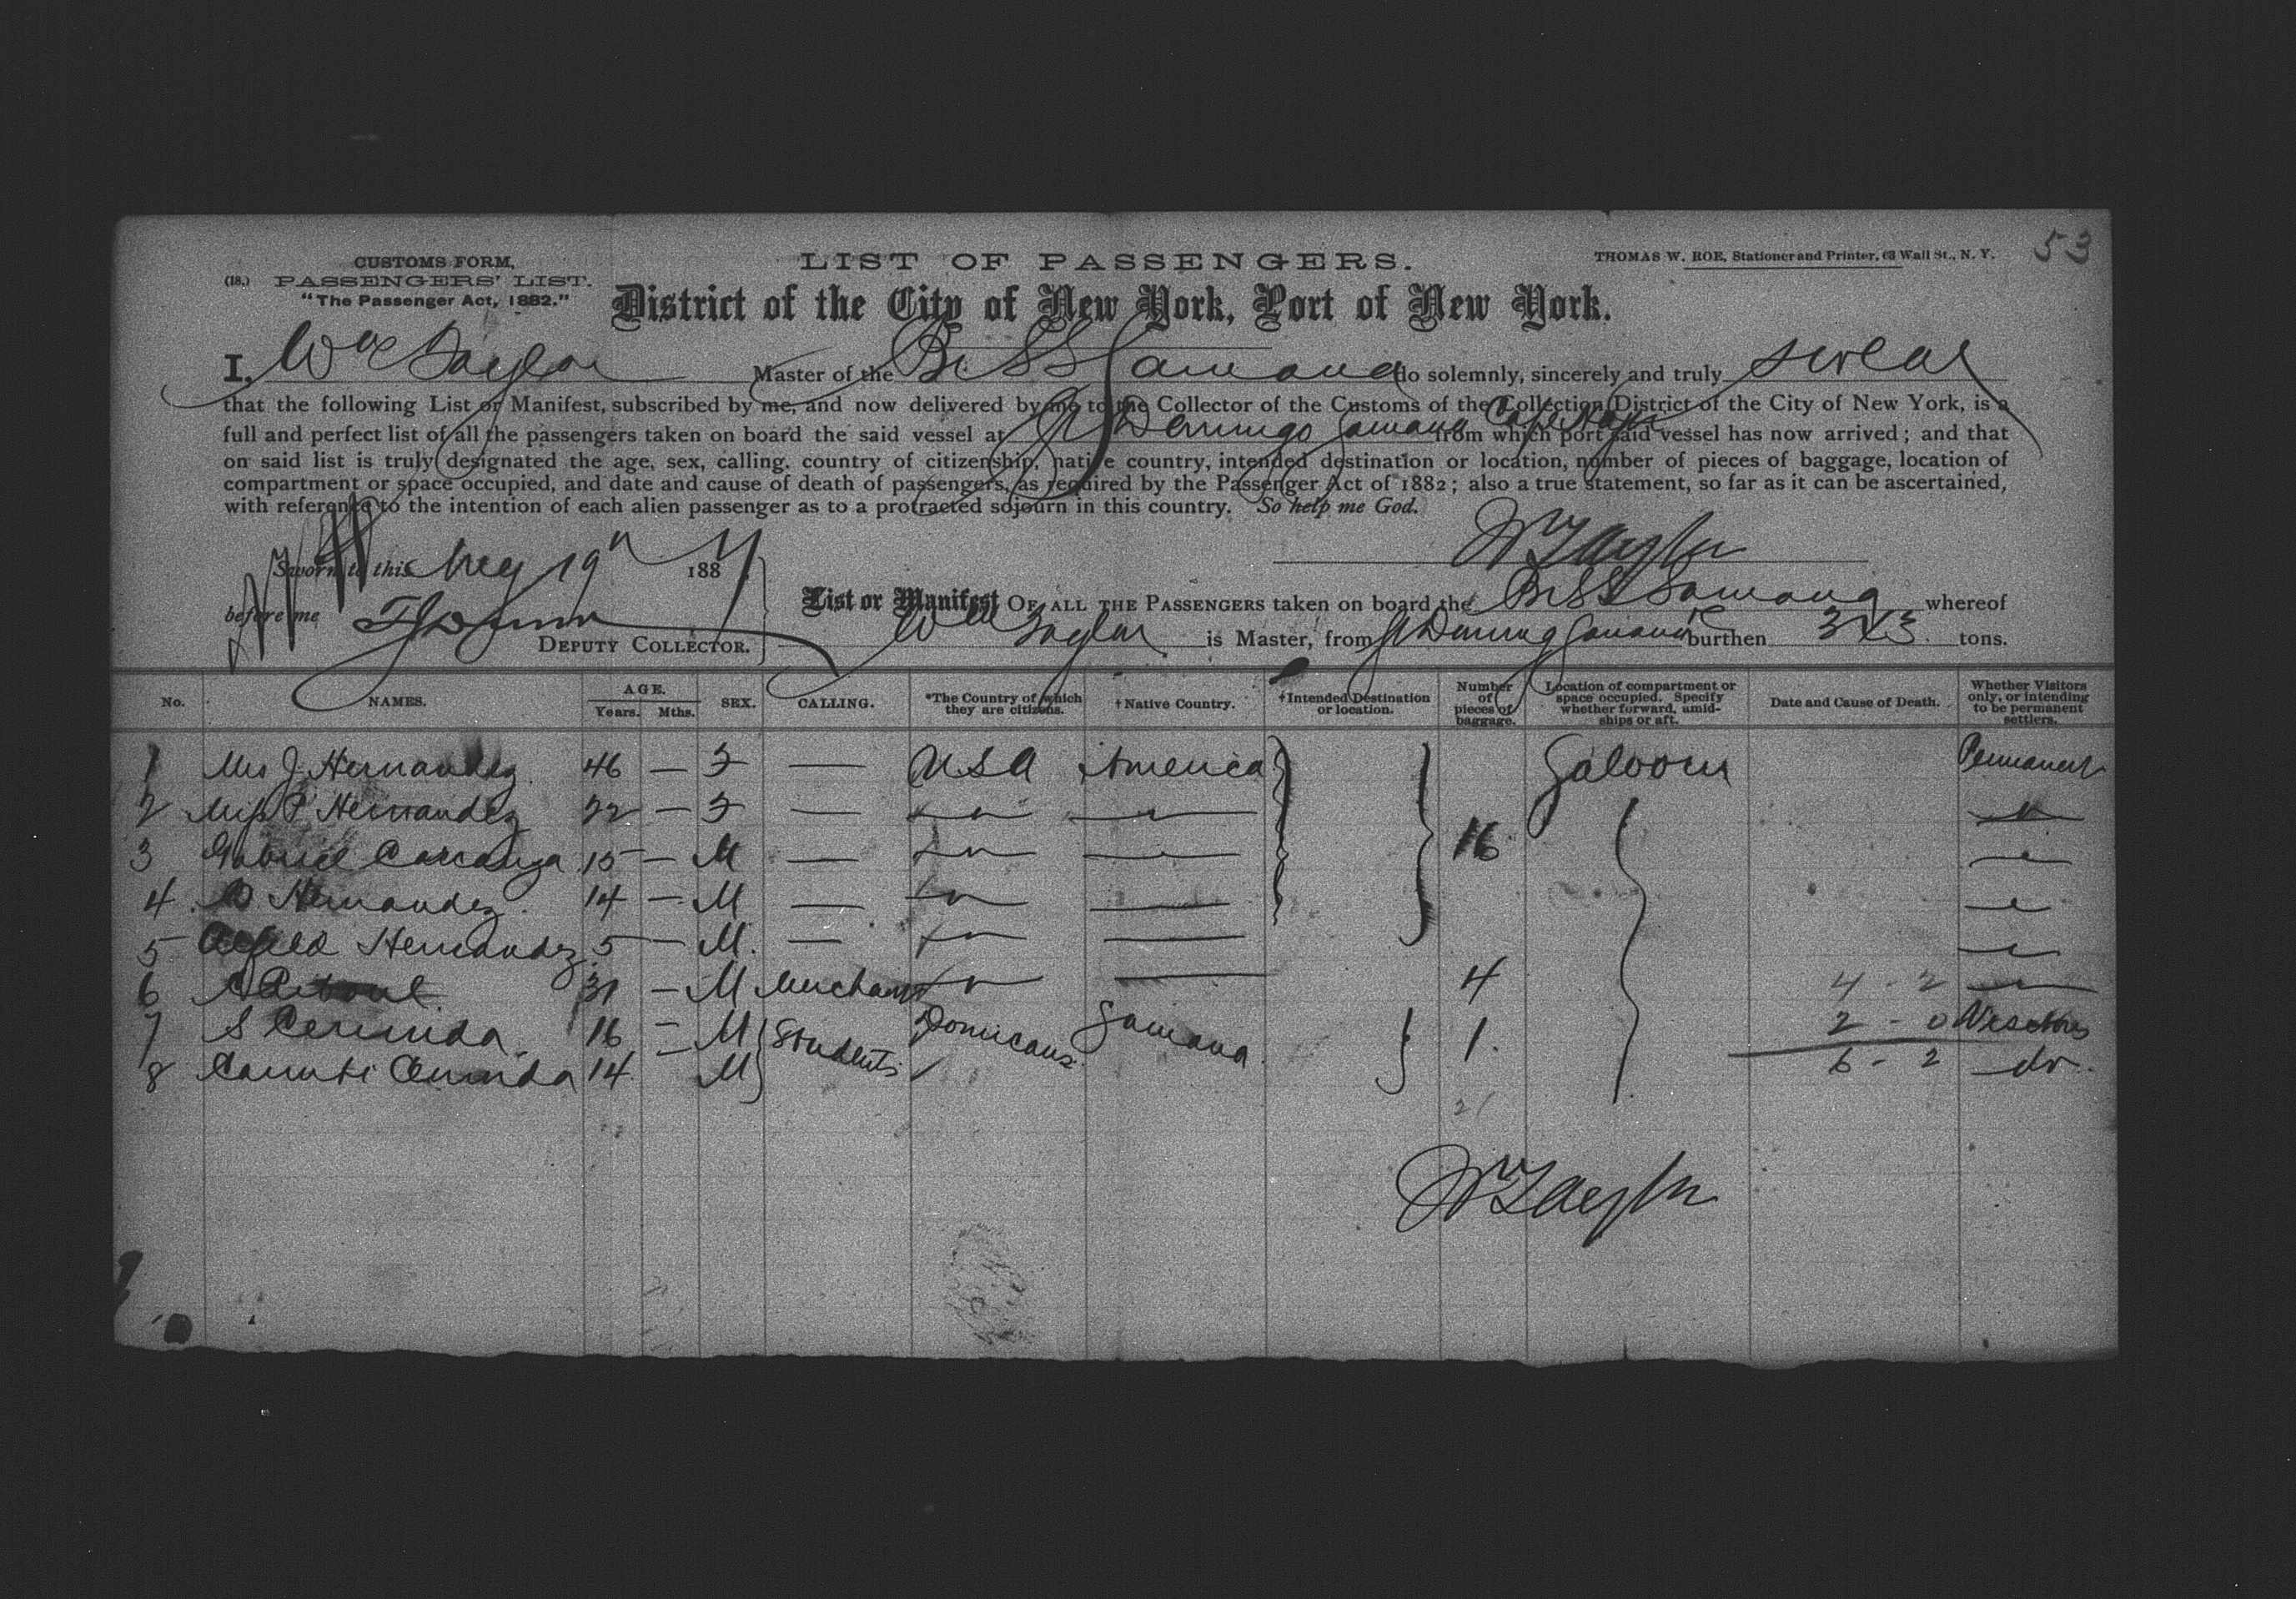 53
CUSTOMS FORM,
(18.) PASSENGERS' LIST.
"The Passenger Act, 1882."
LIST OF PASSENGERS.
THOMAS W. ROE, Stationer and Printer, 63 Wall St., N. Y.
District of the City of New York, Port of New York.
I, Wm Taylor Master of the Br SS Samana do solemnly, sincerely and truly swear
that the following List or Manifest, subscribed by me, and now delivered by me to the Collector of the Customs of the Collection District of the City of New York, is a
full and perfect list of all the passengers taken on board the said vessel at St Domingo Samana from which port said vessel has now arrived; and that
on said list is truly designated the age, sex, calling, country of citizenship, native country, intended destination or location, number of pieces of baggage, location of
compartment or space occupied, and date and cause of death of passengers, as required by the Passenger Act of 1882; also a true statement, so far as it can be ascertained,
with reference to the intention of each alien passenger as to a protracted sojourn in this country. So help me God.
Wm Taylor
Sworn to this 19th 188
before me
DEPUTY COLLECTOR.
List or Manifest OF ALL THE PASSENGERS taken on board the Br SS Samana whereof
Wm Taylor is Master, from St Doming Samana burthen tons.
No. NAMES. AGE. Years. Mths. SEX. CALLING. *The Country of which they are citizens. †Native Country. †Intended Destination or location. Number of pieces of baggage. Location of compartment or space occupied. Specify whether forward, amidships or aft. Date and Cause of Death. Whether Visitors only, or intending to be permanent settlers.
1 Mrs J. Hernandez 46 — F — USA America Saloon Permanent
2 Miss P Hernandez 22 — F — " —
3 Gabriel Carranza 15 — M — " — 16
4 Hernandez 14 — M — " —
5 Hernandez 5 — M. — " —
6 31 — M Merchant " — 4 4 - 2
7 S 16 — M Students Dominicans Samana 1. 2 - 0 Visitors
8 14 — M 6 - 2 do.
21
Wm Taylor